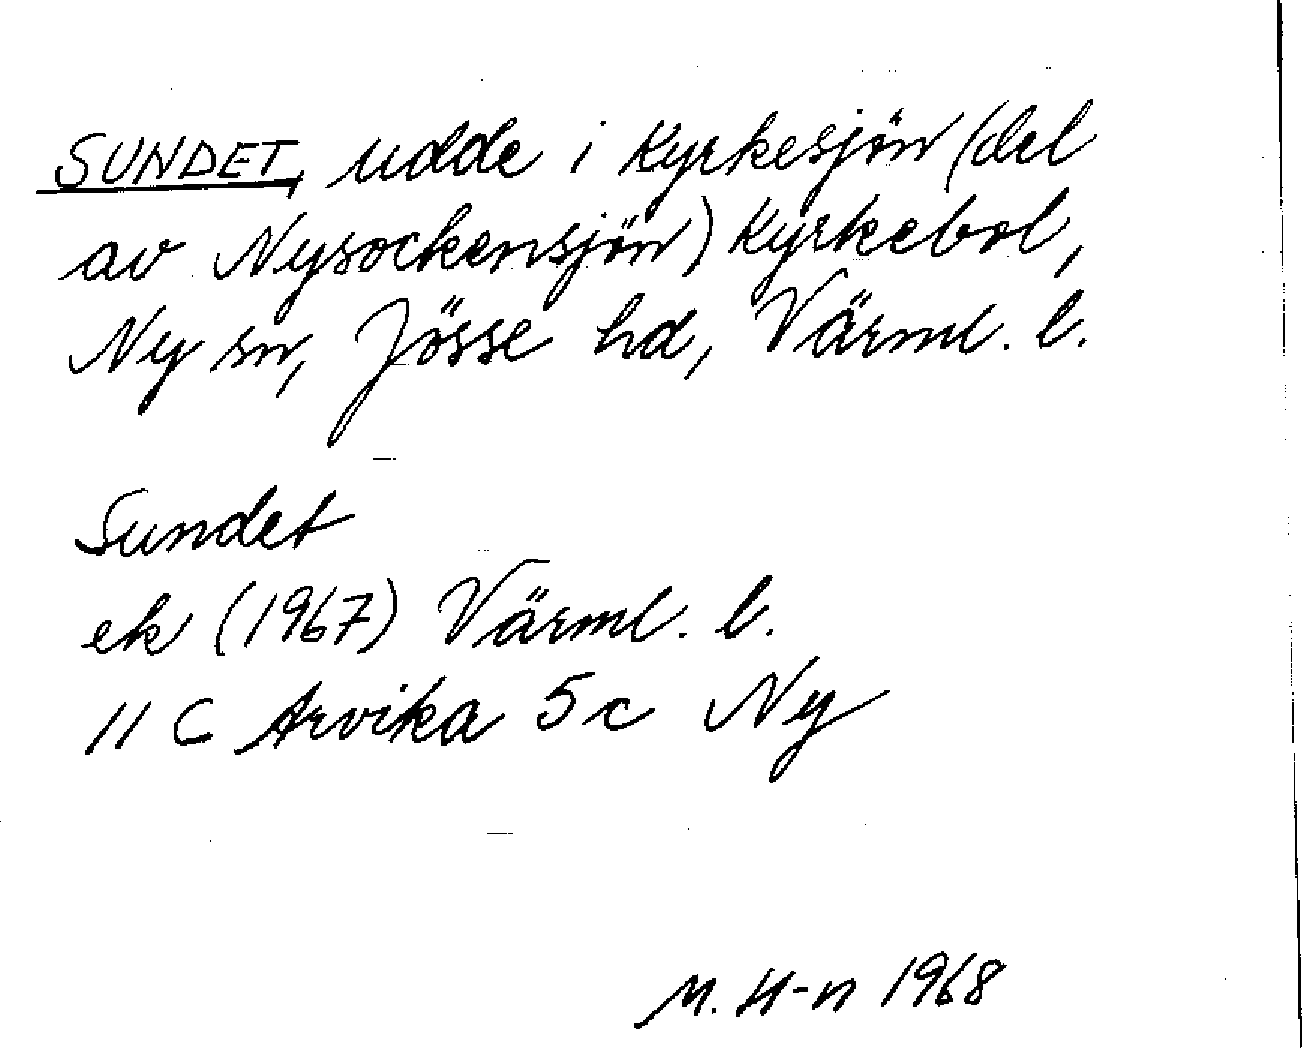 SUNDET, udde i Kyrkesjön (del
av Nysockensjön) Kyrkebol,
Ny sn, Jösse hd, Värml. l.
Sundet
ek (1967) Värml. l.
11 C Arvika 5 c Ny
M. H-n 1968